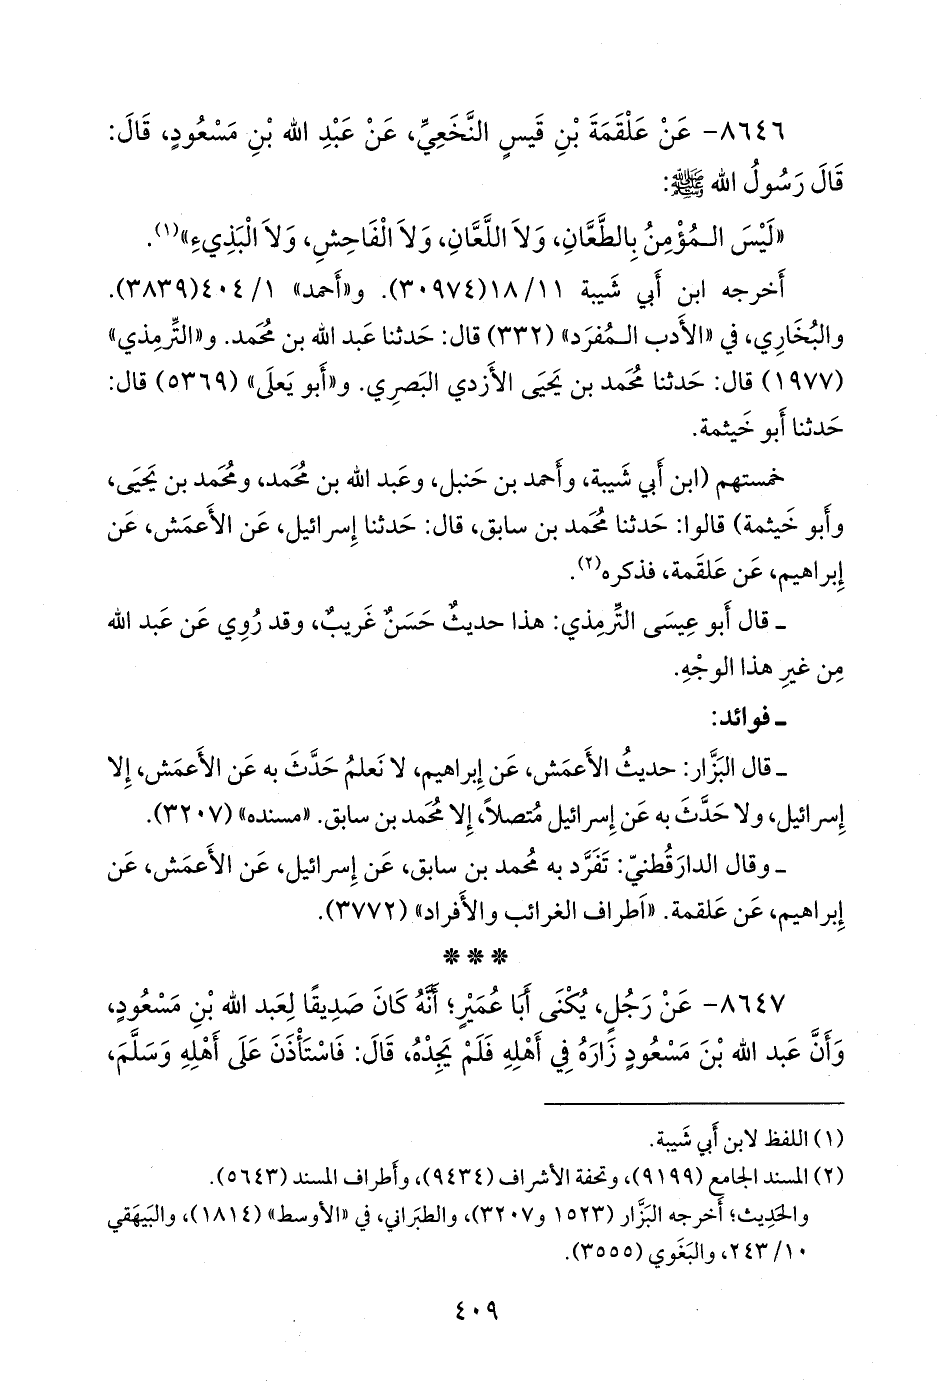 ٨٦٤٦- عَنْ عَلْقَمَةَ بْنِ قَيسٍ النَّخَعِيِّ، عَنْ عَبْدِ الله بْنِ مَسْعُودٍ، قَالَ:
قَالَ رَسُولُ الله ﷺ:
«لَيْسَ الـمُؤْمِنُ بِالطَّعَّانِ، وَلاَ اللَّعَّانِ، وَلاَ الْفَاحِشِ، وَلاَ الْبَذِيءِ»(١).
أَخرجه ابن أَبي شَيبة ١١/ ١٨(٣٠٩٧٤). و«أَحمد» ١/ ٤٠٤(٣٨٣٩).
والبُخَارِي، في «الأَدب الـمُفرَد» (٣٣٢) قال: حَدثنا عَبد الله بن مُحمد. و«التِّرمِذي»
(١٩٧٧) قال: حَدثنا مُحمد بن يَحيَى الأَزدي البَصرِي. و«أَبو يَعلَى» (٥٣٦٩) قال:
حَدثنا أَبو خَيثمة.
خمستهم (ابن أَبي شَيبة، وأَحمد بن حَنبل، وعَبد الله بن مُحمد، ومُحمد بن يَحيَى،
وأَبو خَيثمة) قالوا: حَدثنا مُحمد بن سابق، قال: حَدثنا إِسرائيل، عَن الأَعمَش، عَن
إِبراهيم، عَن عَلقَمة، فذكره(٢).
ـ قال أَبو عِيسَى التِّرمِذي: هذا حديثٌ حَسَنٌ غَريبٌ، وقد رُوِي عَن عَبد الله
مِن غيرِ هذا الوجْهِ.
ـ فوائد:
ـ قال البَزَّار: حديثُ الأَعمَش، عَن إِبراهيم، لا نَعلمُ حَدَّثَ به عَن الأَعمَش، إِلا
إِسرائيل، ولا حَدَّثَ به عَن إِسرائيل مُتصلاً، إِلا مُحمد بن سابق. «مسنده» (٣٢٠٧).
ـ وقال الدارَقُطنيّ: تَفَرَّد به مُحمد بن سابق، عَن إِسرائيل، عَن الأَعمَش، عَن
إِبراهيم، عَن عَلقمة. «أَطراف الغرائب والأَفراد» (٣٧٧٢).
***
٨٦٤٧- عَنْ رَجُلٍ، يُكْنَى أَبَا عُمَيْرٍ؛ أَنَّهُ كَانَ صَدِيقًا لِعَبد الله بْنِ مَسْعُودٍ،
وَأَنَّ عَبد الله بْنَ مَسْعُودٍ زَارَهُ فِي أَهْلِهِ فَلَمْ يَجِدْهُ، قَالَ: فَاسْتَأْذَنَ عَلَى أَهْلِهِ وَسَلَّمَ،
(١) اللفظ لابن أَبي شَيبة.
(٢) المسند الجامع (٩١٩٩)، وتحفة الأشراف (٩٤٣٤)، وأَطراف المسند (٥٦٤٣).
والحَدِيث؛ أَخرجه البَزَّار (١٥٢٣ و٣٢٠٧)، والطبَراني، في «الأَوسط» (١٨١٤)، والبَيهَقي
١٠/ ٢٤٣، والبَغَوي (٣٥٥٥).
٤٠٩